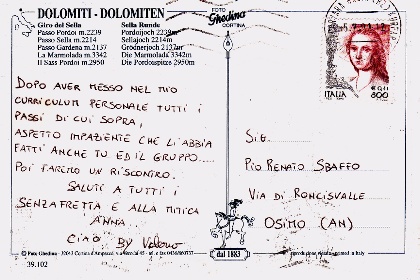 DOLOMITI - DOLOMITEN
Giro del Sella
Passo Pordoi m.2239
Passo Sella m.2214
Passo Gardena m.2137
La Marmolada m.3342
Il Sass Pordoi m.2950
Sella Runde
Pordoijoch 2239m
Sellajoch 2214m
Grödnerjoch 2137m
Die Marmolada 3342m
Die Pordoispitze 2950m
FOTO
Ghedina
CORTINA
ITALIA
800
DOPO AVER MESSO NEL MIO
CURRICULUM PERSONALE TUTTI I
PASSI DI CUI SOPRA,
ASPETTO IMPAZIENTE CHE LI ABBIA
FATTI ANCHE TU ED IL GRUPPO.....
POI FAREMO UN RISCONTRO.
SALUTI A TUTTI I
SENZAFRETTA E ALLA MITICA
ANNA...
CIAO BY
SIG.
PIO RENATO SBAFFO
VIA DI RONCISVALLE
OSIMO (AN)
dal 1883
© Foto Ghedina - 32043 Cortina d'Ampezzo
39.102
printed in italy